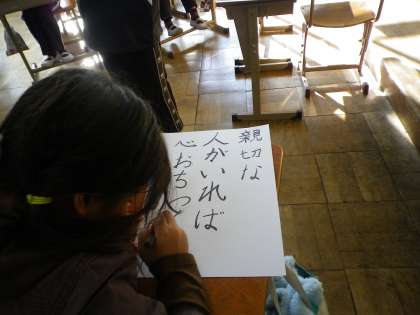 親切な
人がいれば
心おちつ